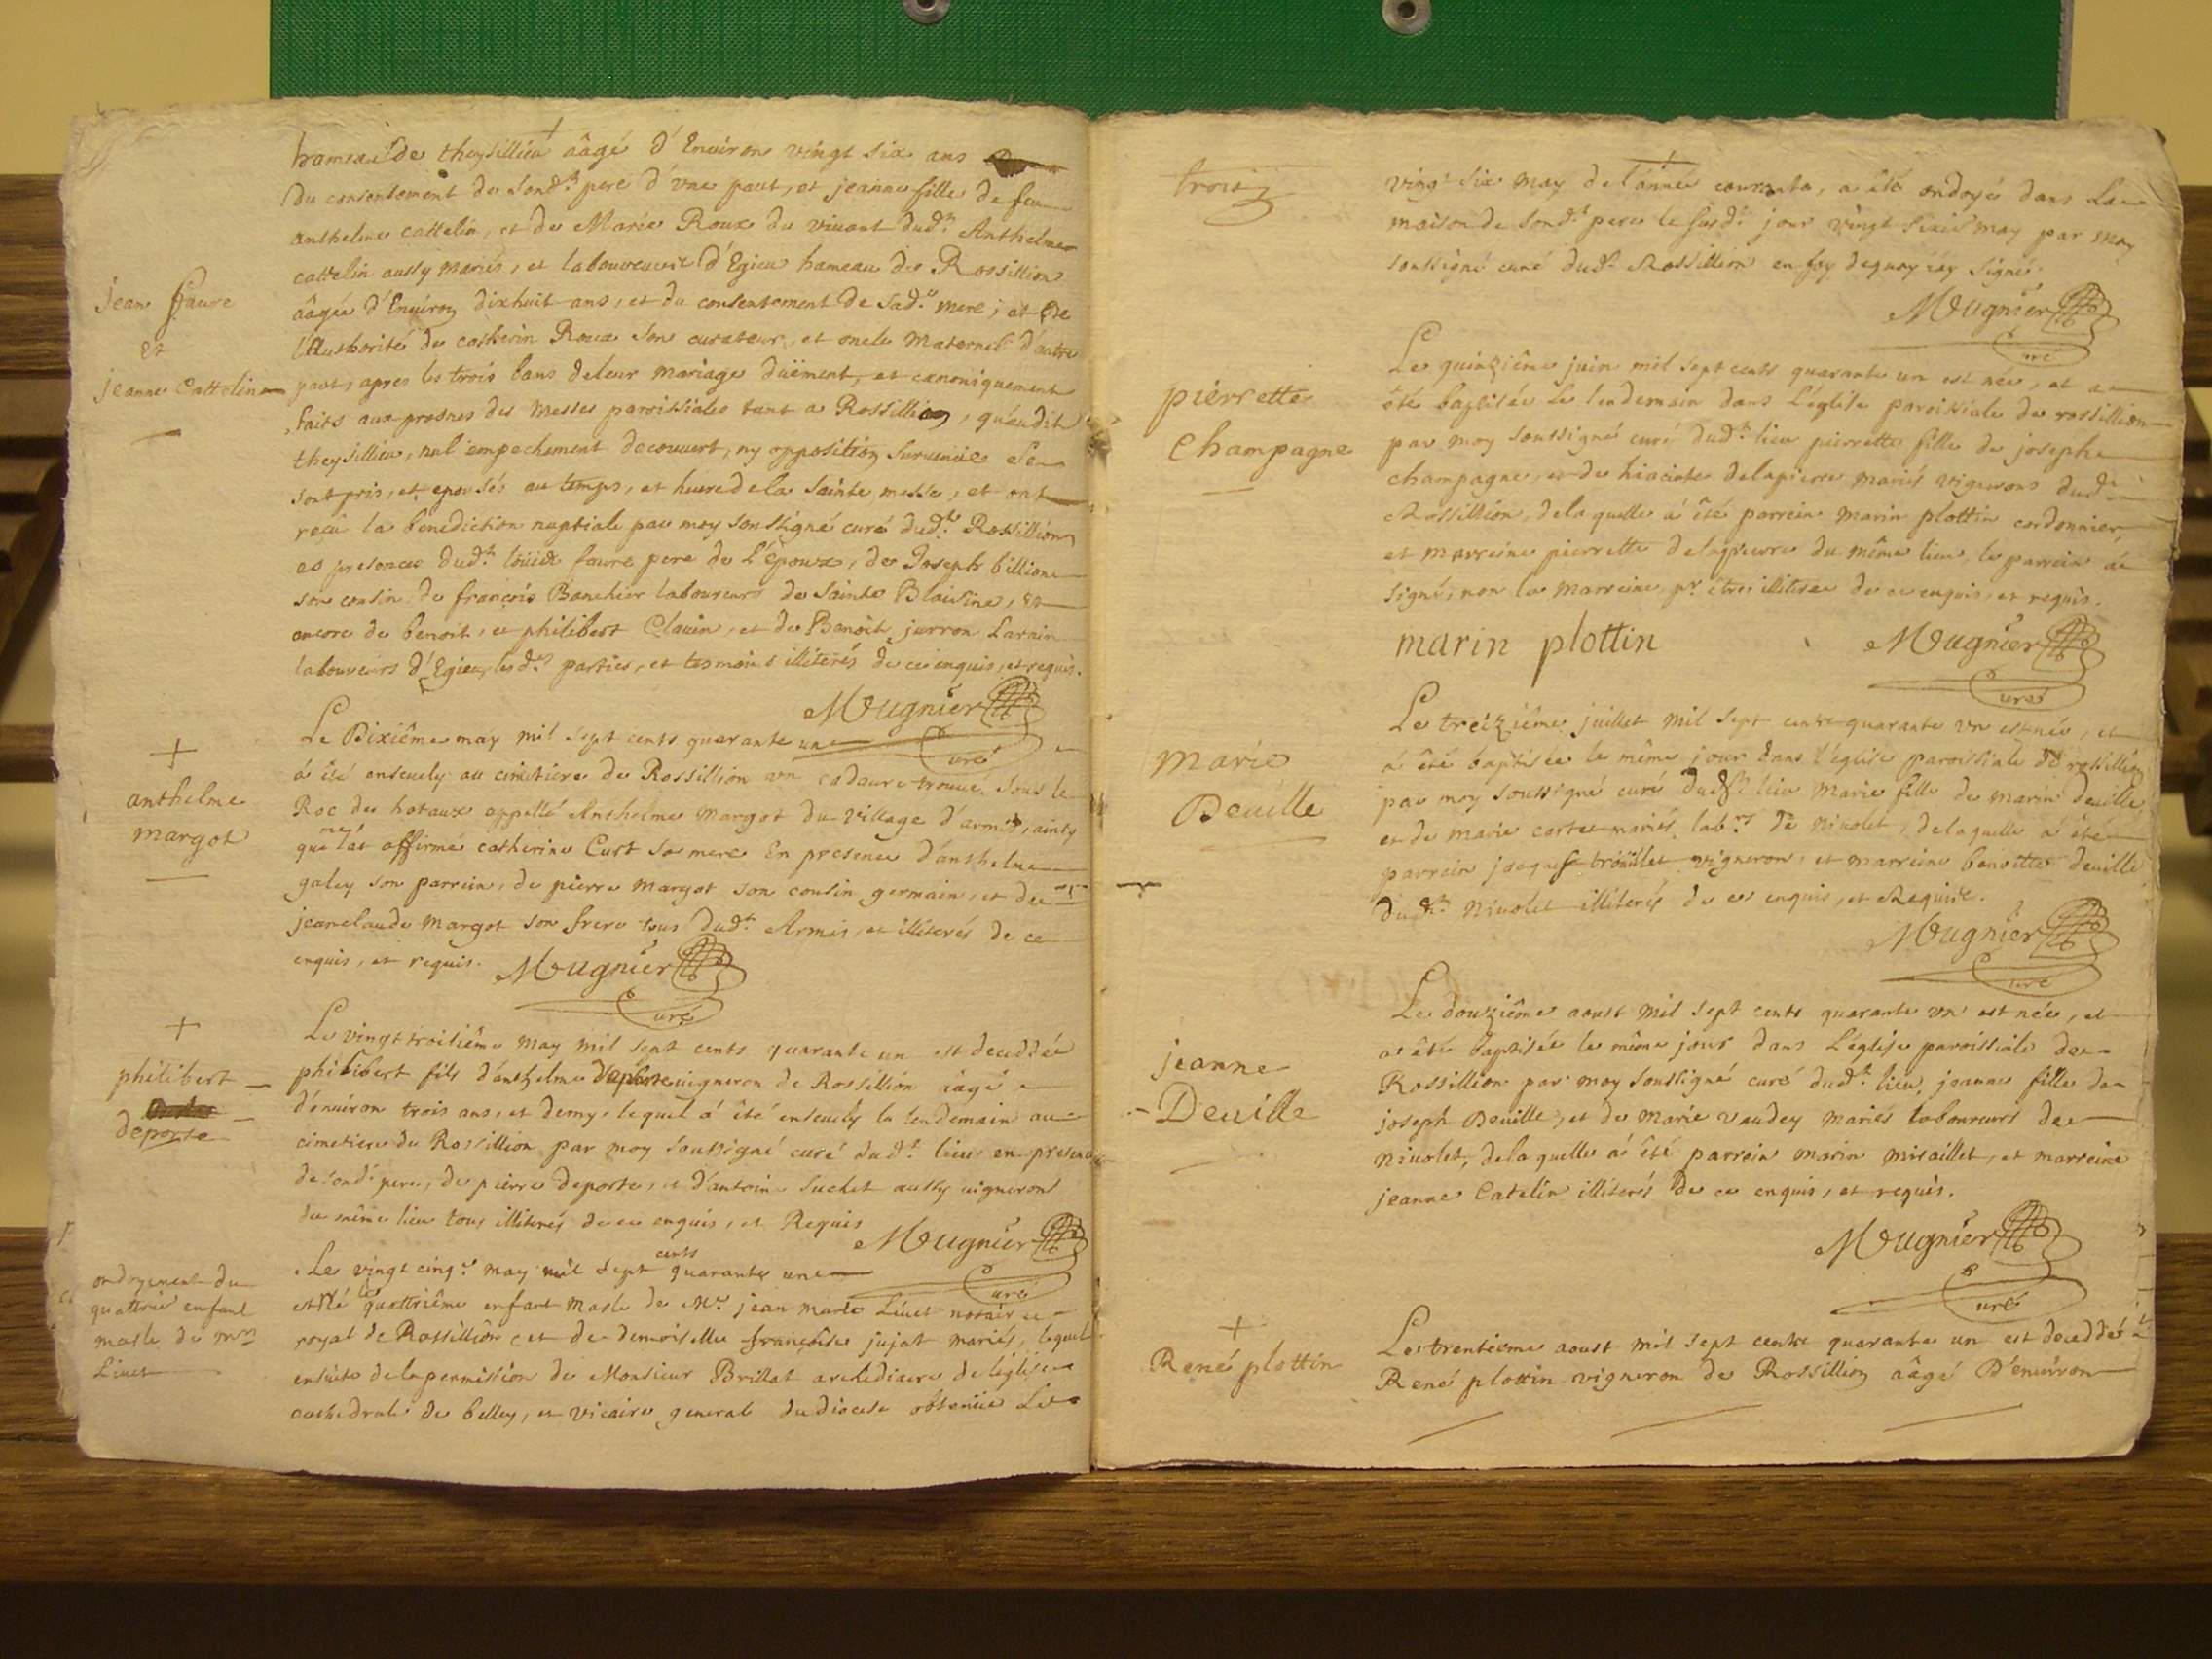 hameau de theysillieu âagé d'Environ vingt six ans
du consentement de sond.t pere d'vne part, et jeanne fille de feu
anthelme cattelin, et de Marie Roux du viuant dud.t Anthelme
cattelin aussy mariés, et laboureurs d'Egieu hameau de Rossillion
Jean ffaure
Et
jeanne Cattelin
âagée d'Enuiron dixhuit ans, et du consentement de sad.e mere, et de
l'Authorité de Roux son curateur, et oncle Maternel d'autre
part, apres les trois bans de leur mariage düement, et canoniquement
faits aux prosnes des messes paroissiales tant a Rossillion, qu'audit
theysillieu, nul empechement decouuert, ny opposition suruenüe se
sont pris, et epousés au temps, et heure de la sainte messe, et ont
reçû la benediction nuptiale par moy soussigné curé dud.t Rossillion
es presences dud.t loüis faure pere de L'Epoux, de Joseph billion
son cousin, de françois Banchier laboureurs de Sainte Blaisine, et
encore de benoit, et philibert Clauin, et de Benoit jurron Larain
laboureurs d'Egieu, lesd.es parties, et tesmoins illiterés de ce enquis, et requis.
Mugnier
curé
+
anthelme
margot
Le Dixiême may mil sept cents quarante un
á été enseuely au cimetiere de Rossillion vn cadaure trouué sous le
Roc des hotaux appellé Anthelme Margot du village d'armis, ainsy
que l'at affirmé catherine Curt sa mere En presence d'anthelme
galey son parrein, de pierre margot son cousin germain, et de
jeanclaude margot son frere tous dud.t Armis, et illiterés de ce
enquis, et requis. Mugnier
curé
+
philibert
deporte
Le vingt troisiême may mil sept cents quarante un est deceddée
philibert fils d'anthelme Deporte uigneron de Rossillion âagé
d'enuiron trois ans, et demy, lequel á été enseuely le lendemain au
cimetiere de Rossillion par moy soussigné curé dud.t lieu en presence
de sond.t pere, de pierre deporte, et d'antoine suchet aussy uignerons
du même lieu tous illiterés de ce enquis, et Requis
Mugnier
curé
ondoyement du
quattrié enfant
masle de
Liuet
Le vingt cinq.e may mil sept cents quarante une
est Né le quattriême enfant masle de M.r jean marie Liuet notaire
royal de Rossillion et de demoiselle françoise jujat mariés, lequel
ensuite de la permission de Monsieur Brillat archediacre de l'église
cathedrale de belley, et vicaire general du diocese obtenüe Le
trois
vingt six may de l'année courante, a été ondoyé dans La
maison de sond.t pere le susd.t jour vingt sixié may par moy
soussigné curé dud.t Rossillion en foy dequoy j'ay signé.
Mugnier
curé
pierrette
Champagne
Le quinziême juin mil sept cents quarante un est née, et a
été baptisée le lendemain dans L'église paroissiale de rossillion
par moy soussigné curé dud.t lieu pierrette fille de joseph
champagne, et de hiacinte delapierre mariés vignerons dud.t
Rossillion, delaquelle á été parrein marin plottin cordonnier,
et marreine pierrette delapierre du même lieu, le parrein a
signé, non la marreine p.r être illiterée de ce enquis, et requis.
marin plottin
Mugnier
curé
marie
Deuille
Le treiziême juillet mil sept cents quarante vn est née, et
a été baptisée le même jour dans l'église paroissiale de rossillion
par moy soussigné curé dud.t lieu marie fille de marin deuille
et de marie mariés lab.rs de niuolet, delaquelle a été
parrein jacques trouillet vigneron, et marreine benoitte deuille
dud.t Niuolet illiterés de ce enquis, et Requis.
Mugnier
curé
jeanne
Deuille
Le douziême aoust mil sept cents quarante vn est née, et
a été baptisée le même jour dans L'église paroissiale de
Rossillion par moy soussigné curé dud.t lieu, jeanne fille de
joseph Deuille, et de marie vaudey mariés laboureurs de
niuolet, delaquelle á été parrein marin miraillet, et marreine
jeanne Catelin illiterés de ce enquis, et requis.
Mugnier
curé
+
René plottin
Le trentieme aoust mil sept cents quarante un est deceddé
René plottin vigneron de Rossillion âagé D'enuiron